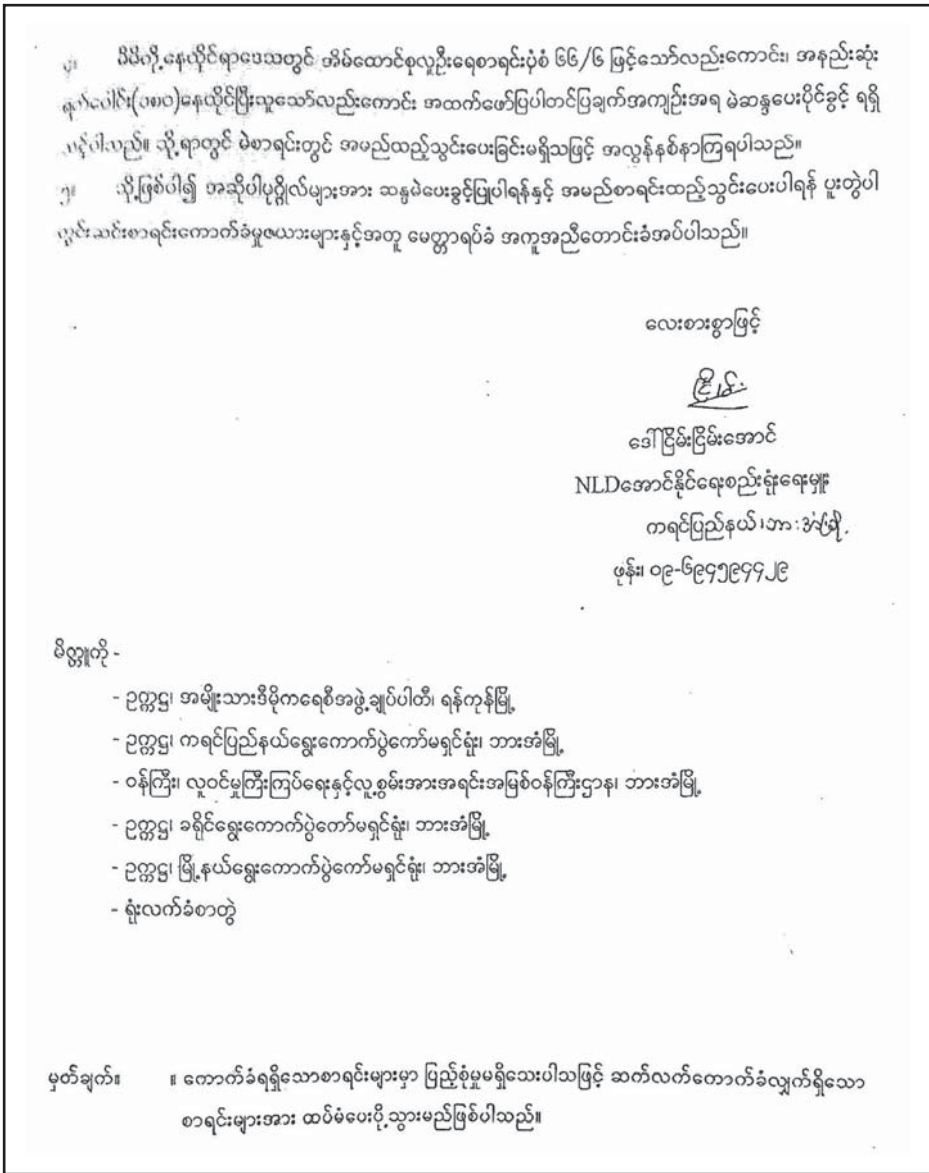 ၄။ မိမိတို့နေထိုင်ရာဒေသတွင် အိမ်ထောင်စုလူဦးရေစာရင်းပုံစံ ၆၆/၆ ဖြင့်သော်လည်းကောင်း၊ အနည်းဆုံး
ရက်ပေါင်း(၁၈၀)နေထိုင်ပြီးသူသော်လည်းကောင်း အထက်ဖော်ပြပါတင်ပြချက်အကျဉ်းအရ မဲဆန္ဒပေးပိုင်ခွင့် ရရှိ
သင့်ပါသည်။ သို့ရာတွင် မဲစာရင်းတွင် အမည်ထည့်သွင်းပေးခြင်းမရှိသဖြင့် အလွန်နစ်နာကြရပါသည်။
၅။ သို့ဖြစ်ပါ၍ အဆိုပါပုဂ္ဂိုလ်များအား ဆန္ဒမဲပေးခွင့်ပြုပါရန်နှင့် အမည်စာရင်းထည့်သွင်းပေးပါရန် ပူးတွဲပါ
ကွင်းဆင်းစာရင်းကောက်ခံမှုဇယားများနှင့်အတူ မေတ္တာရပ်ခံ အကူအညီတောင်းခံအပ်ပါသည်။
လေးစားစွာဖြင့်
ဒေါ်ငြိမ်းငြိမ်းအောင်
NLDအောင်နိုင်ရေးစည်းရုံးရေးမှူး
ကရင်ပြည်နယ်၊ဘားအံမြို့.
ဖုန်း၊ ၀၉-၆၉၄၅၉၄၄၂၉
မိတ္တူကို -
- ဥက္ကဋ္ဌ၊ အမျိုးသားဒီမိုကရေစီအဖွဲ့ချုပ်ပါတီ၊ ရန်ကုန်မြို့
- ဥက္ကဋ္ဌ၊ ကရင်ပြည်နယ်ရွေးကောက်ပွဲကော်မရှင်ရုံး၊ ဘားအံမြို့
- ဝန်ကြီး၊ လူဝင်မှုကြီးကြပ်ရေးနှင့်လူ့စွမ်းအားအရင်းအမြစ်ဝန်ကြီးဌာန၊ ဘားအံမြို့
- ဥက္ကဋ္ဌ၊ ခရိုင်ရွေးကောက်ပွဲကော်မရှင်ရုံး၊ ဘားအံမြို့
- ဥက္ကဋ္ဌ၊ မြို့နယ်ရွေးကောက်ပွဲကော်မရှင်ရုံး၊ ဘားအံမြို့
- ရုံးလက်ခံစာတွဲ
မှတ်ချက်။ ။ ကောက်ခံရရှိသောစာရင်းများမှာ ပြည့်စုံမှုမရှိသေးပါသဖြင့် ဆက်လက်ကောက်ခံလျှက်ရှိသော
စာရင်းများအား ထပ်မံပေးပို့သွားမည်ဖြစ်ပါသည်။